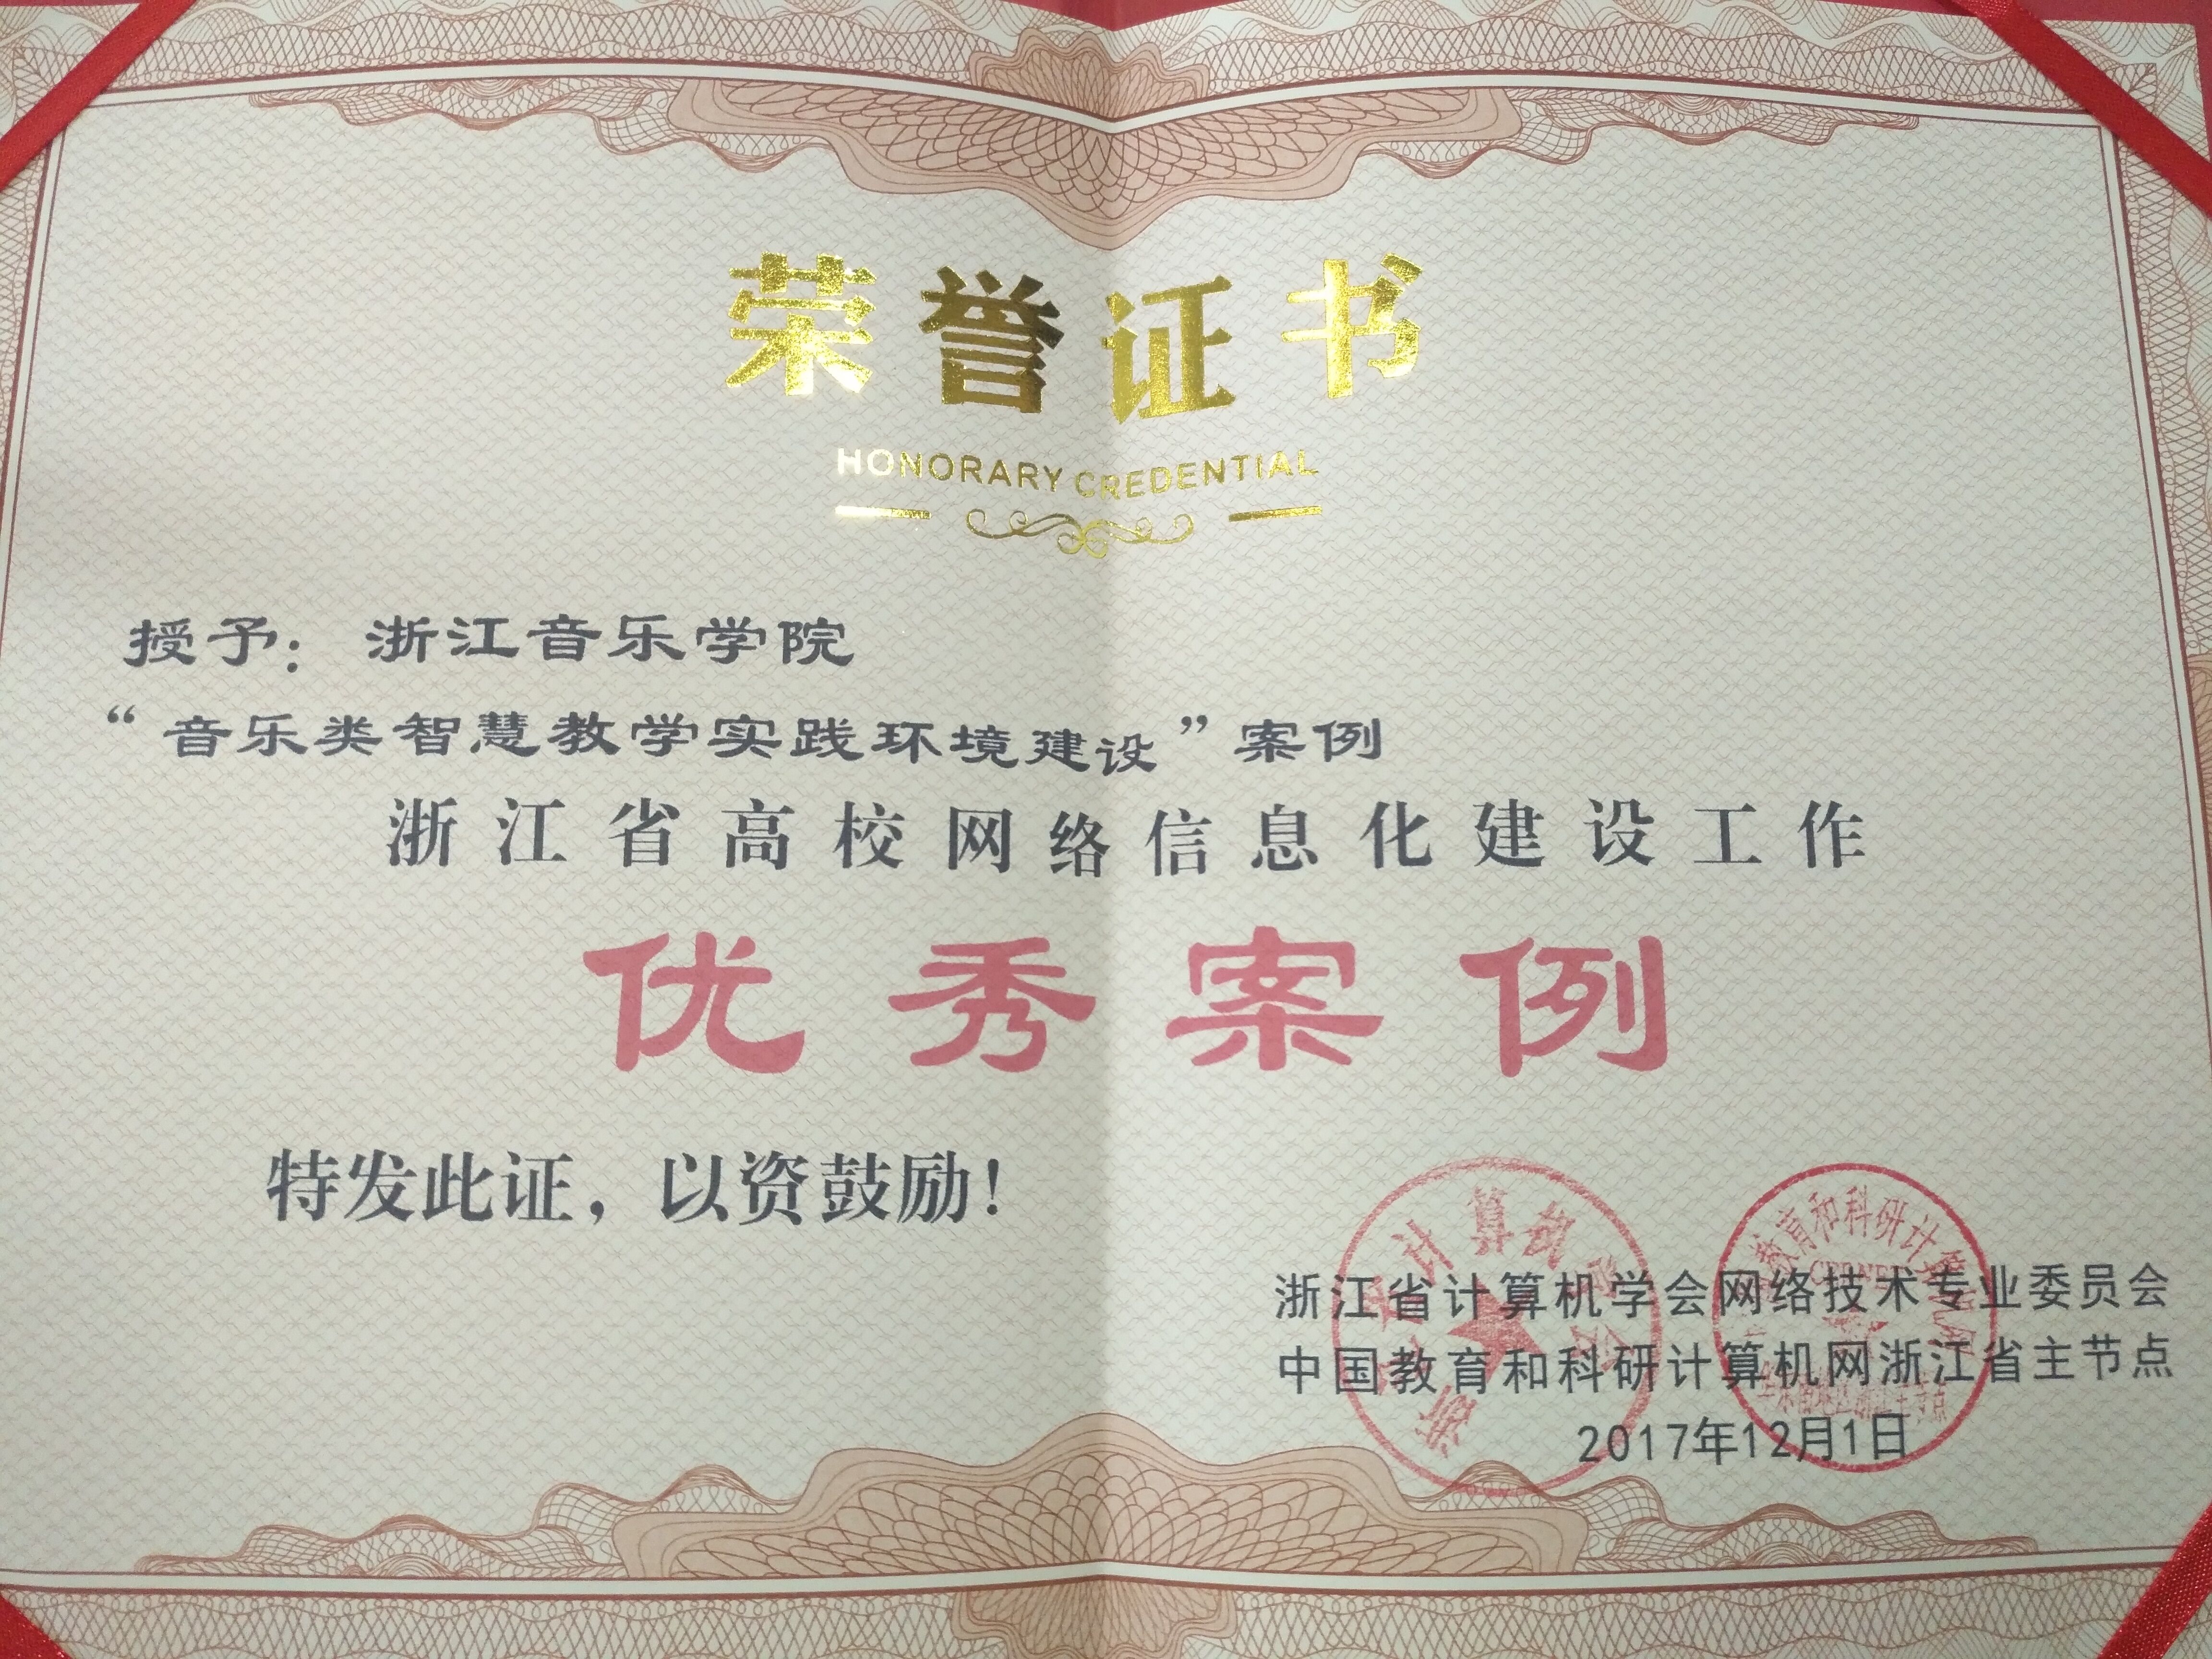 荣誉证书
HONORARY CREDENTIAL
授予：浙江音乐学院
“音乐类智慧教学实践环境建设”案例
浙江省高校网络信息化建设工作
优秀案例
特发此证，以资鼓励！
浙江省计算机学会网络技术专业委员会
中国教育和科研计算机网浙江省主节点
2017年12月1日